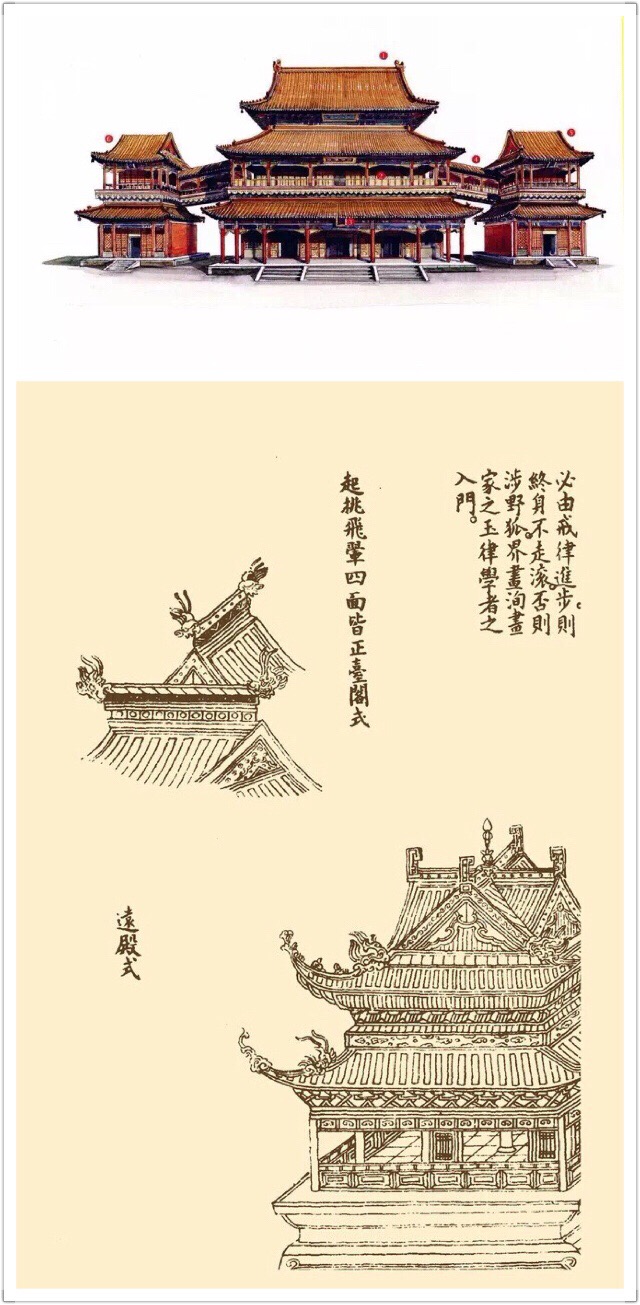 1
6
5
4
3
必由戒律進步。則
終身不走滾。否則
涉野狐。界畫洵畫
家之玉律學者之
入門。
起挑飛翬四面皆正臺閣式
遠殿式